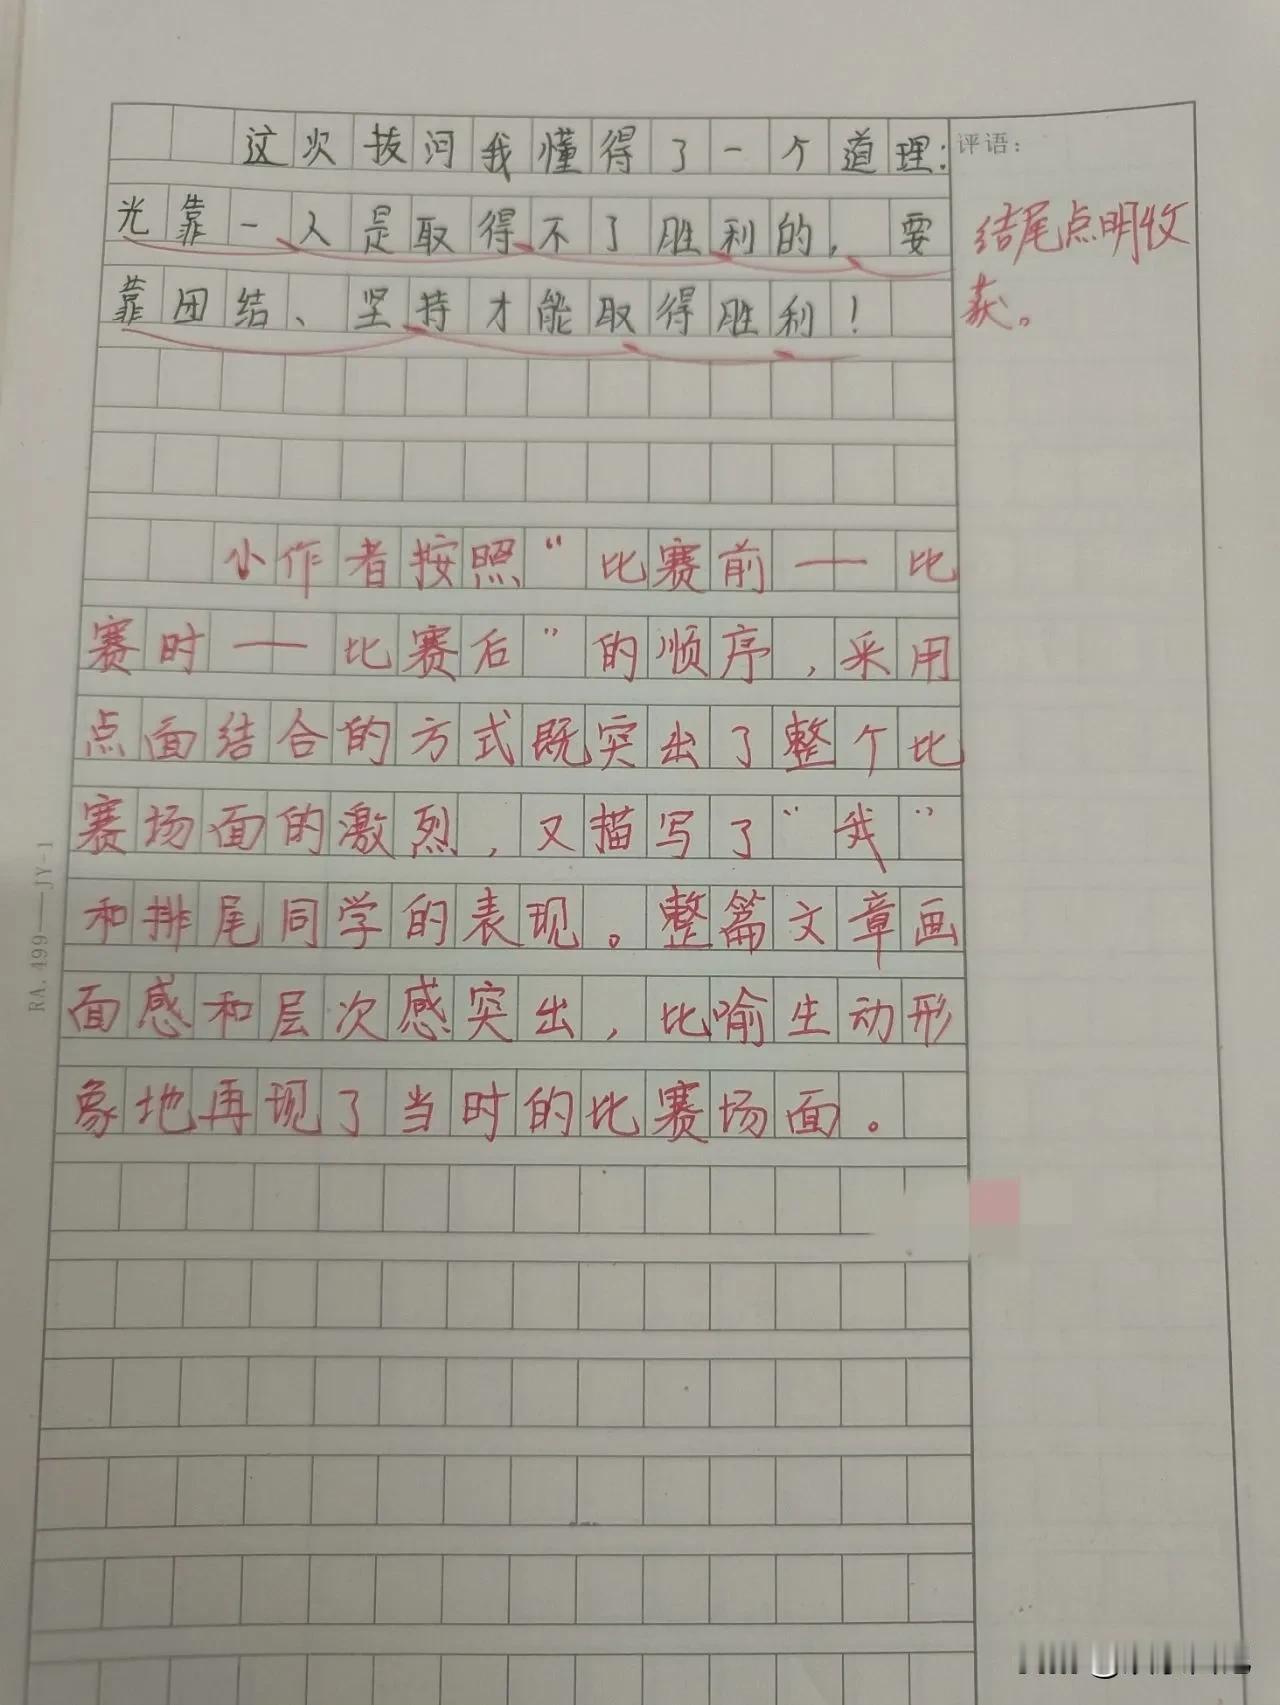 这次拔河我懂得了一个道理:
评语:
光靠一人是取得不了胜利的,要
靠团结、坚持才能取得胜利!
结尾点明收
获。
小作者按照“比赛前——比
赛时——比赛后”的顺序,采用
点面结合的方式既突出了整个比
赛场面的激烈,又描写了“我”
和排尾同学的表现。整篇文章画
面感和层次感突出,比喻生动形
象地再现了当时的比赛场面。
RA.499——JY-1